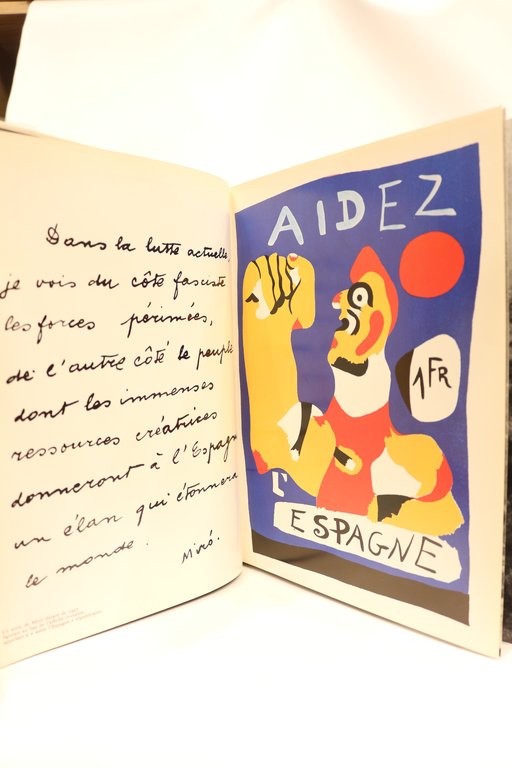 Dans la lutte actuelle
je vois du côté fasciste
les forces périmées,
de l'autre côté le peuple
dont les immenses
ressources créatrices
donneront à l'Espagn
un élan qui étonnera
le monde.
Miró.
AIDEZ
1FR
L'
ESPAGNE